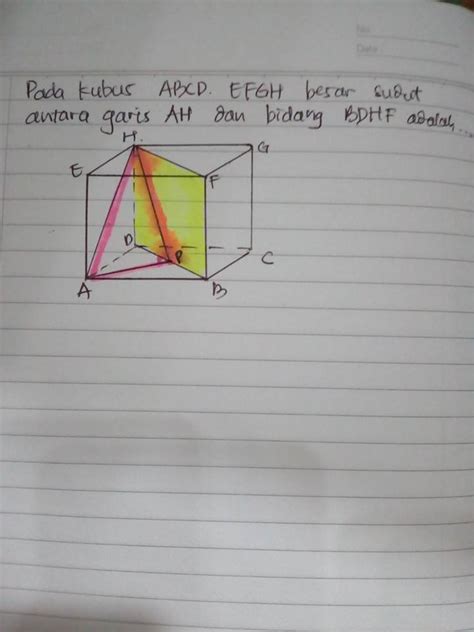 No
Date
Pada kubus ABCD. EFGH besar sudut
antara garis AH dan bidang BDHF adalah...
H
G
E
F
D
C
P
A
B